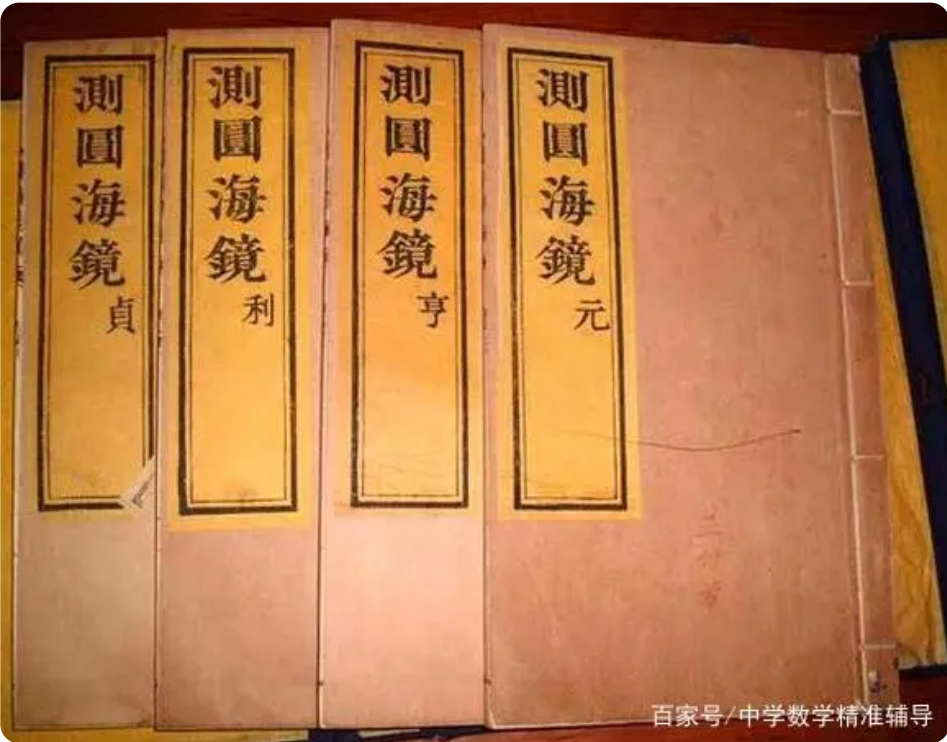 測圓海鏡
元
測圓海鏡
亨
測圓海鏡
利
測圓海鏡
貞
百家号/中学数学精准辅导